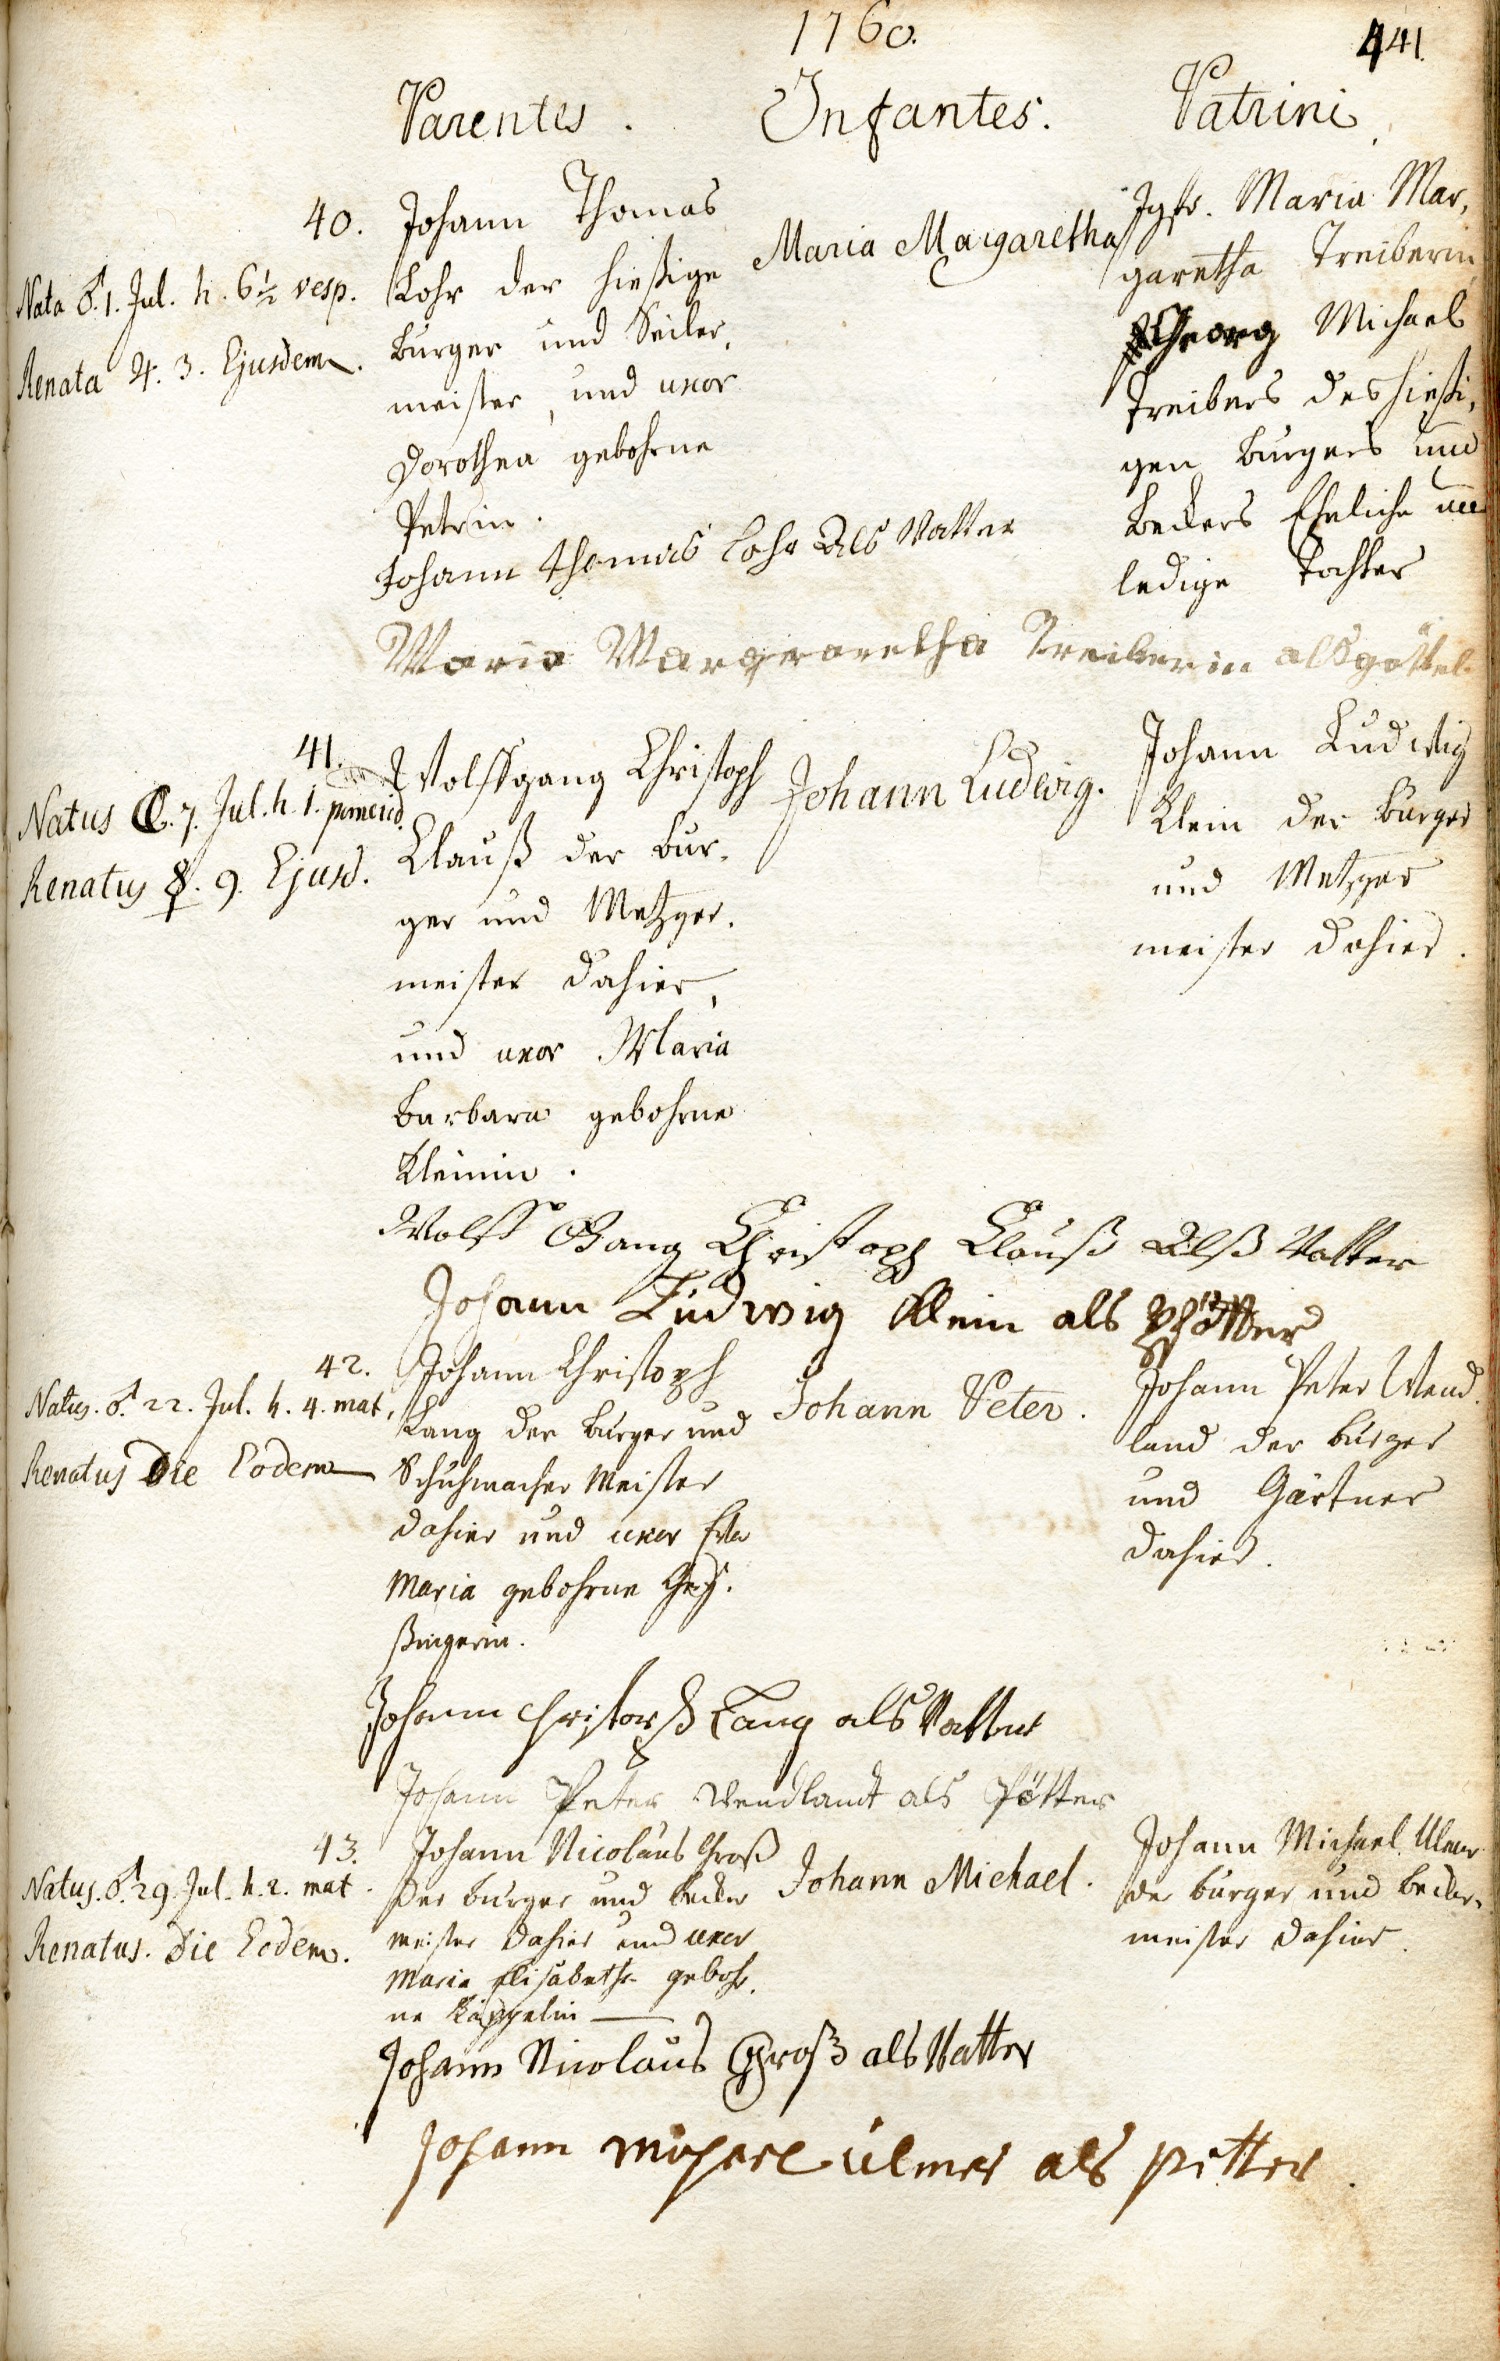 1760.
441.
Parentes. Infantes. Patrini.
40.
Nata ♂. 1. Jul. h. 6½ vesp.
Renata ♃. 3. Ejusdem.
Johann Thomas
Lohr der hießige
Burger und Seiler,
meister, und uxor
Dorothea gebohrne
Petrin.
Maria Margaretha
Jgfr. Maria Mar,
garetha Treiberin
Georg Michael
Treibers des hießi,
gen Burgers und
Beckers Eheliche
ledige Tochter
Johann Thomas Lohr Als Vatter
Maria Margraretha Treiberin als göttel.
41.
Natus ☾. 7. Jul. h. 1. pomerid.
Renatus ☿. 9. Ejusd.
Wolffgang Christoph
Clauß der Bur,
ger und Metzger,
meister dahier,
und uxor Maria
Barbara gebohrne
Kleinin.
Johann Ludwig.
Johann Ludwig
Klein der Burger
und Metzger
meister dahier.
Wolff Gang Christoph Clauß Alß Vatter
Johann Ludwig Klein als
42.
Natus. ♂. 22. Jul. h. 4. mat,
Renatus Die Eodem
Johann Christoph
Lang der Burger und
Schuhmacher Meister
dahier und uxor Eva
Maria gebohrne
ßingerin.
Johann Peter.
Johann Peter Wend,
land der Burger
und Gärtner
dahier.
Johann Christoph Lang als Vatter
Johann Peter Wendlandt als Pötter
43.
Natus. ♂. 29. Jul. h. 2. mat.
Renatus. Die Eodem.
Johann Nicolaus Groß
der Burger und Becker
meister dahier und uxor
Maria Elisabetha gebohr,
ne Käppelin
Johann Michael.
Johann Michael Ulmer
der Burger und Becker,
meister dahier.
Johann Nicolaus Groß als Vatter
Johann Michael Ulmer als Petter.